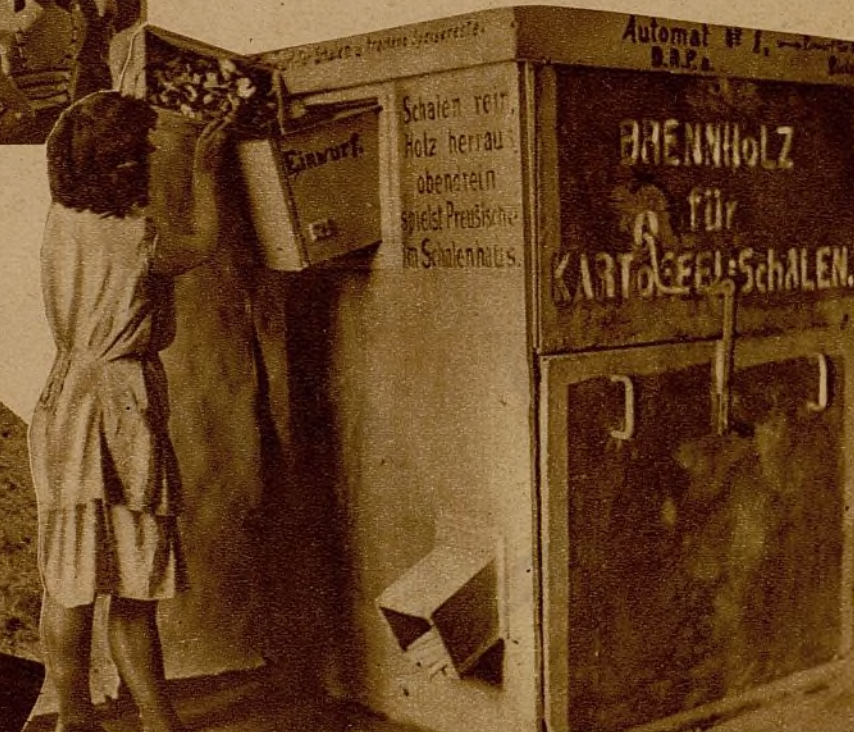 für Schalen u. trockene Speisereste.
Einwurf.
Schalen rein,
Holz herraus
obendrein
spielst Preußische
im Schalenhaus.
Automat № 1.
D.R.P.a.
BRENNHOLZ
für
KARTOFFEL-SCHALEN.